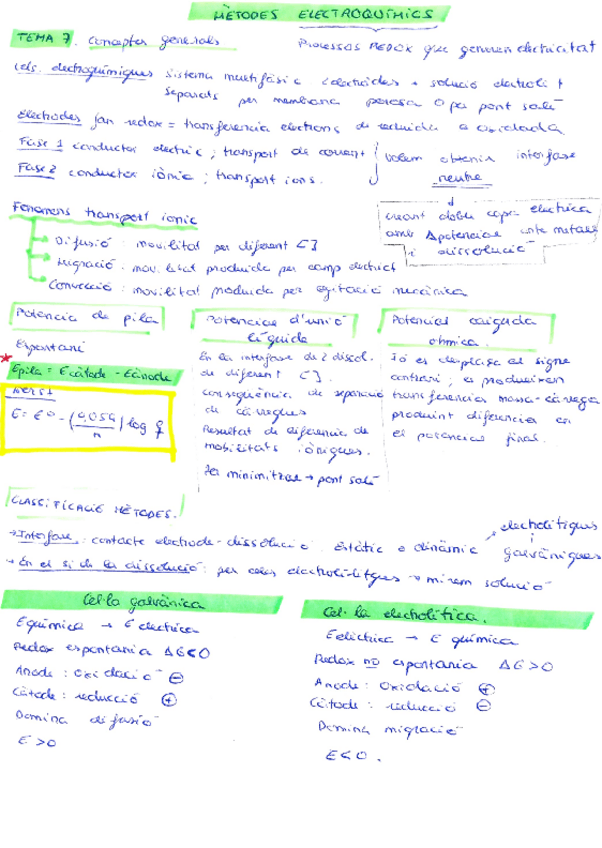 MÈTODES ELECTROQUÍMICS
TEMA 7. Conceptes generals
Processos REDOX que generen electricitat
Cels. electroquímiques sistema multifàsic. elèctrodes + solució electròlit
separats per membrana porosa o per pont salí
Elèctrodes fan redox = transferencia electrons de reduida a oxidada
Fase 1 conductor electric; transport de corrent
Fase 2 conductor iònic; transport ions.
volem obtenir interfase
neutre
creant doble capa electrica
amb Δpotencial entre metall
i dissolució
Fenomens transport ionic
Difusió: movilitat per diferent [ ]
Migració: movilitat produida per camp electrict
Convecció: movilitat produida per agitació mecànica
Potencia de pila
Espontani
* Epila = Ecàtode - Eànode
Nerst
E = E° - (0,059/n) log Q
Potencial d'unió
líquida
En la interfase de 2 dissol.
de diferent [ ].
consequència de separació
de càrregues
Resultat de diferencia de
mobilitats iòniques.
Per minimitzar → pont salí
Potencial caiguda
ohmica.
Io es desplaça al signe
contrari; es produeixen
transferencia massa-càrrega
produint diferencia en
el potencial final.
CLASSIFICACIÓ MÈTODES.
→ Interfase: contacte electrode-dissolució. Estàtic o dinàmic
electrolítiques
galvàniques
→ En el si de la dissolució: per celes electrolítiques → mirem solució
Cel·la galvànica
E química → E electrica
Redox espontania ΔG<0
Anode: oxidació ⊖
Càtode: reducció ⊕
Domina difusió
E>0
Cel·la electrolítica.
E elèctrica → E química
Redox no espontania ΔG>0
Anode: oxidació ⊕
Càtode: reducció ⊖
Domina migració
E<0.